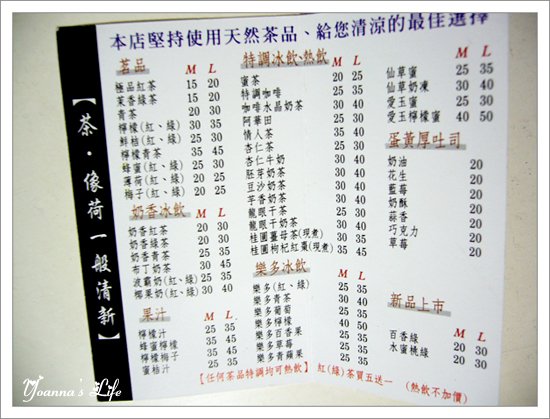 本店堅持使用天然茶品、給您清涼的最佳選擇
【茶．像荷一般清新】
茗品 M L
極品紅茶 15 20
茉香綠茶 15 20
青茶 20 30
檸檬(紅、綠) 30 35
鮮桔(紅、綠) 30 35
檸檬青茶 35 45
蜂蜜(紅、綠)
薄荷(紅、綠) 20 25
梅子(紅、綠) 20 25
奶香冰飲 M L
奶香紅茶 20 30
奶香綠茶 20 30
奶香青茶 25 35
布丁奶茶 35 45
波霸奶(紅、綠) 25 35
椰果奶(紅、綠) 30 40
果汁 M L
檸檬汁 25 35
蜂蜜檸檬 35 45
檸檬梅子 35 45
蜜桔汁 25 35
特調冰飲、熱飲 M L
蜜茶 20 25
特調咖啡 25 35
咖啡水晶奶茶 30 40
阿華田
情人茶
杏仁茶
杏仁牛奶
胚芽奶茶
豆沙奶茶
芋香奶茶
龍眼干茶
龍眼干奶茶
桂圓薑母茶(現煮)
桂圓枸杞紅棗(現煮)
樂多冰飲 M L
樂多(紅、綠) 25 35
樂多青茶
樂多葡萄
樂多檸檬 40 50
樂多百香果
樂多草莓
樂多青蘋果
M L
仙草蜜 25 35
仙草奶凍 30 40
愛玉蜜 25 35
愛玉檸檬蜜 40 50
蛋黃厚吐司
奶油 20
花生 20
藍莓 20
奶酥 20
蒜香 20
巧克力 20
草莓 20
新品上市
M L
百香綠 20 30
水蜜桃綠 20 30
【任何茶品特調均可熱飲】
紅(綠)茶買五送一 (熱飲不加價)
Yoanna's Life